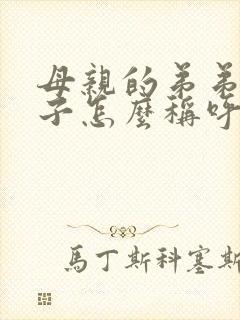 母親的弟弟
子怎麼稱呼
馬丁斯科塞斯